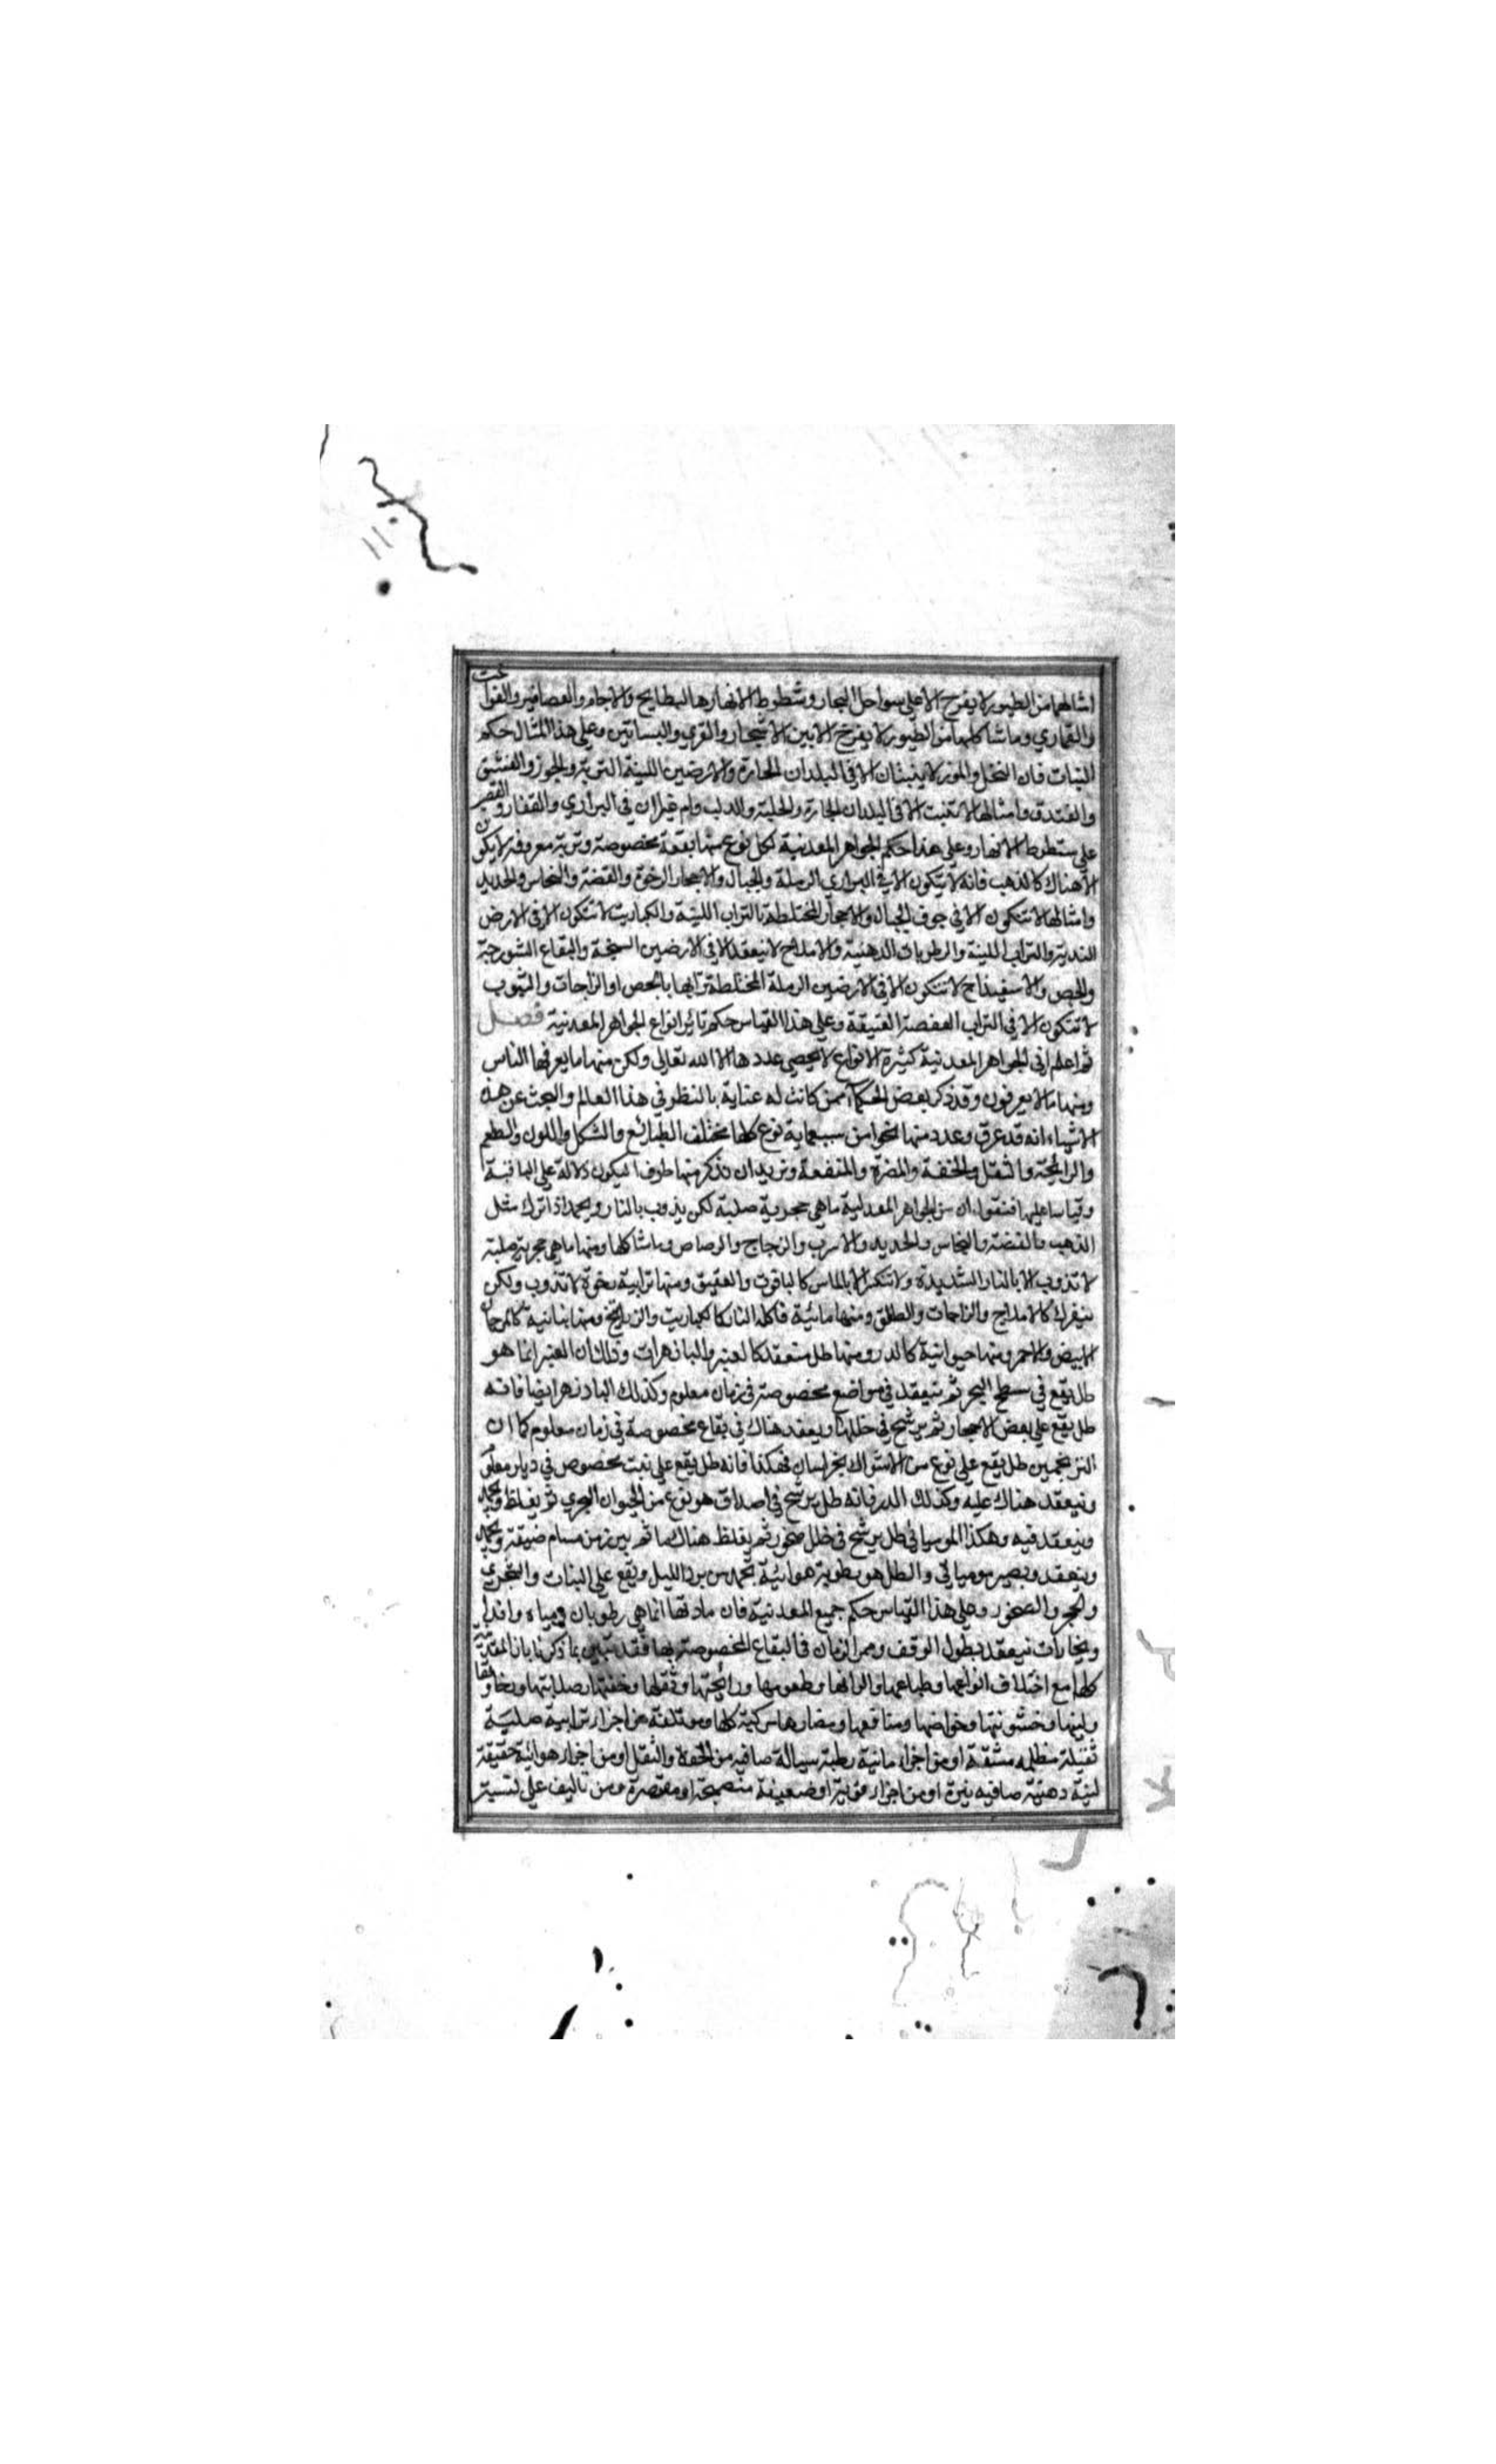 امثالهما من الطيور لا يفرخ الا على سواحل البحار وشطوط الانهار والبطايح والاجام والعصافير والفواخت
والقماري وما شاكلها من الطيور لا يفرخ الا بين الاشجار والقري والبساتين وعلى هذا المثال حكم
النبات فان النخل والموز لا ينبتان الا في البلدان الحارة والارضين اللينة التربة والجوز والفستق
والفندق وامثالها لا تنبت الا في البلدان والدلب وام غيلان في البراري والقفار والقصب
على شطوط الانهار وعلى هذا حكم الجواهر المعدنية لكل نوع منها بقعة مخصوصة وتربة معروفة لا يكون
الا هناك كالذهب فانه لا يتكون الا في البراري الرملة والجبال والاحجار الرخوة والفضة والنحاس والحديد
وامثالها لا تتكون الا في جوف الجبال والاحجار المختلطة بالتراب اللينة والكباريت لا تتكون الا في الارض
الندية والتراب اللينة والرطوبات الدهنية والاملاح لا ينعقد الا في الارضين السبخة والبقاع الشورجة
والجص والاسفيذاج لا تتكون الا في الارضين الرملة المختلطة ترابها بالجص او الزاجات والشبوب
لا تتكون الا في التراب العفصة وعلى هذا القياس حكم ساير انواع الجواهر المعدنية فصل
ثم اعلم اني الجواهر المعدنية كثيرة الانواع لا يحصي عددها الا الله تعالى ولكن منها ما يعرفها الناس
ومنها ما لا يعرفون وقد ذكر بعض الحكماء ممن كانت له عناية بالنظر في هذا العالم والبحث عن هذه
الاشياء انه قد عرق وعدد منها نحوا من سبعماية نوع كلها مختلف الطبائع والشكل واللون والطعم
والرايحة والثقل والخفة والمضرة والمنفعة ونريد ان نذكر منها طرفا ليكون دلالة على الباقية
وقياسا عليها فنقول ان من الجواهر المعدنية ما هي حجرية صلبة لكن يذوب بالنار ويجمد اذا ترك مثل
الذهب والفضة والنحاس والحديد والاسرب والزجاج والرصاص وما شاكلها ومنها ما هي حجرية صلبة
لا تذوب الا بالنار الشديدة ولا تنكسر الا بالماس كالياقوت والعقيق ومنها ترابية رخوة لا تذوب ولكن
ينفرك كالاملاح والزاجات والطلق ومنها مائية فاكله النار كالكباريت والزرنيخ ومنها نباتية كالمرجان
الابيض والاحمر ومنها حيوانية كالدر ومنها طل منعقد كالعنبر والبازهرات وذلك ان العنبر انما هو
طل يقع في سطح البحر ثم ينعقد في مواضع مخصوصة في زمان معلوم وكذلك البادزهر ايضا فانه
طل يقع على بعض الاحجار ثم يرشح في خللها وينعقد هناك في بقاع مخصوصة في زمان معلوم كما ان
الترنجبين طل يقع على نوع من الاشواك بخراسان فهكذا فانه طل يقع على نبت مخصوص في ديار معلوم
وينعقد هناك عليه وكذلك الدر فانه طل يرشح في اصداق هو نوع من الحيوان البحري ثم يغلظ ويجمد
وينعقد فيه وهكذا الموميائي طل يرشح في خلل صخور ثم يغلظ هناك ماثم بين زمن مسام ضيقة ويجمد
وينعقد ويصير مومياتي والطل هو رطوبة هوائية تجمد من برد الليل ويقع على النبات والشجر
والحجر والصخور وعلى هذا القياس حكم جميع المعدنية فان مادتها انما هي رطوبات ومياه وانداء
وبخارات ينعقد بطول الوقف وممر الزمان في البقاع المخصوصة بها فقد تبين بما ذكرنا بان المعدنية
كلها مع اختلاف انواعها وطباعها والوانها وطعومها ورائحتها وثقلها وخفتها وصلابتها ورخاوتها
ولينها وخشونتها وخواصها ومنافعها ومضارها مركبة كلها ومؤتلفة من اجزاء ترابية صلبة
ثقيلة مظلمه مشقة او من اجزاء مائية رطبة سيالة صافيه من الخفة والثقل او من اجزاء هوائية حفيفة
لينة دهنية صافيه نيرة او من اجزاء قوية او ضعيفة منضجة او مقصرة ومن تاليف على